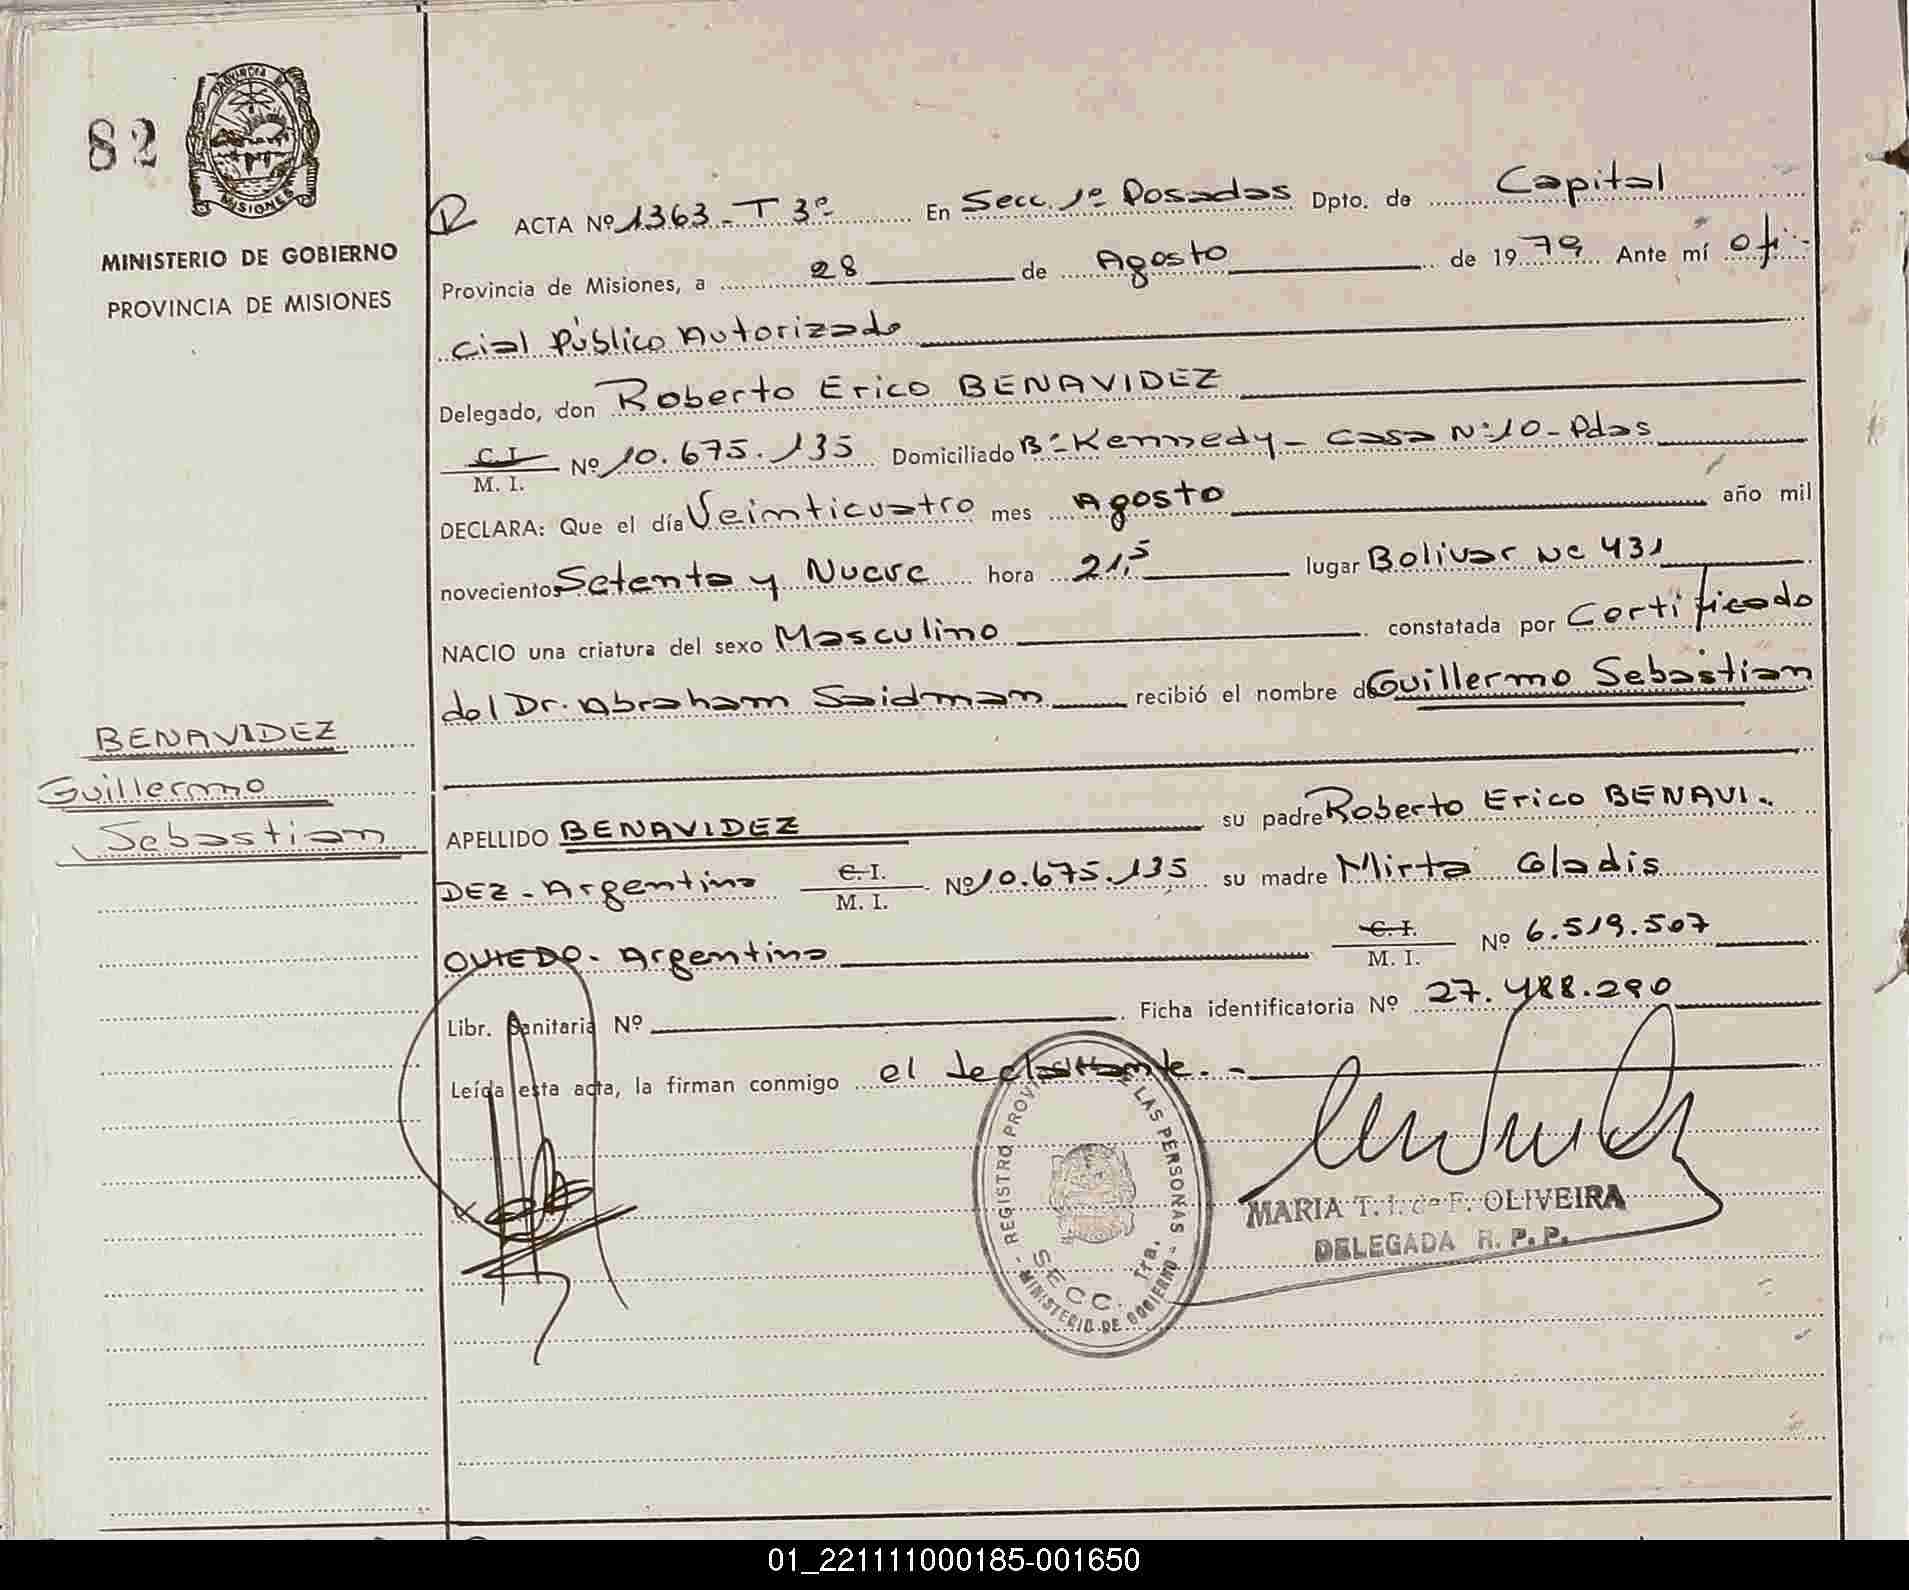 82
PROVINCIA DE
MISIONES
MINISTERIO DE GOBIERNO
PROVINCIA DE MISIONES
ACTA Nº 1363 - T 3º En Secc. 1º Posadas Dpto. de Capital
Provincia de Misiones, a 28 de Agosto de 1979 Ante mí Ofi-
cial Público Autorizado
Delegado, don Roberto Erico BENAVIDEZ
C.I.
M. I. Nº 10.675.135 Domiciliado Bº Kennedy - Casa Nº 10 - Pdas
DECLARA: Que el día Veinticuatro mes Agosto año mil
novecientos Setenta y Nueve hora 21,5 lugar Bolivar Nº 431
NACIO una criatura del sexo Masculino constatada por Certificado
del Dr. Abraham Saidman recibió el nombre de Guillermo Sebastian
BENAVIDEZ
Guillermo
Sebastian
APELLIDO BENAVIDEZ su padre Roberto Erico BENAVI-
DEZ - Argentino C.I.
M. I. Nº 10.675.135 su madre Mirta Gladis
OVIEDO - Argentina C.I.
M. I. Nº 6.519.507
Libr. Sanitaria Nº Ficha identificatoria Nº 27.488.290
Leída esta acta, la firman conmigo el declarante. -
REGISTRO PROVINCIAL DE LAS PERSONAS
SECC. 1ra.
- MINISTERIO DE GOBIERNO -
MARIA T. I. de F. OLIVEIRA
DELEGADA R. P. P.
01_221111000185-001650